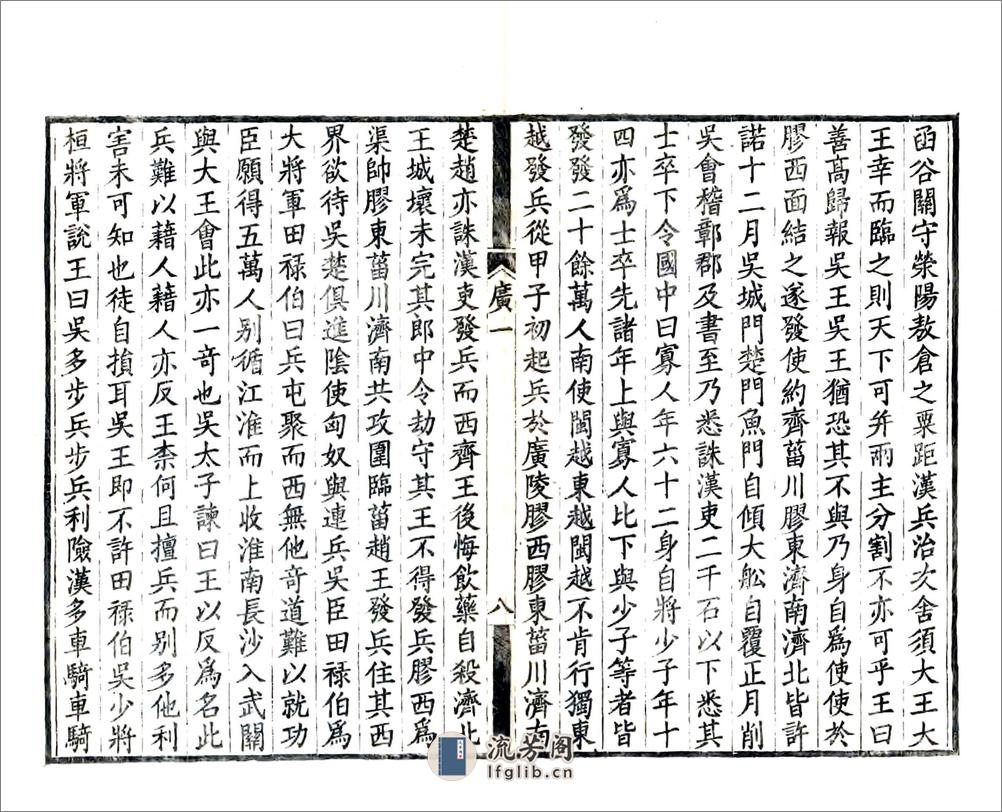 函谷關守滎陽敖倉之粟距漢兵治次舍須大王大
王幸而臨之則天下可并兩主分割不亦可乎王曰
善高歸報吳王吳王猶恐其不與乃身自爲使使於
膠西面結之遂發使約齊菑川膠東濟南濟北皆許
諾十二月吳城門楚門魚門自傾大舩自覆正月削
吳會稽鄣郡及書至乃悉誅漢吏二千石以下悉其
士卒下令國中曰寡人年六十二身自將少子年十
四亦爲士卒先諸年上與寡人比下與少子等者皆
發發二十餘萬人南使閩越東越閩越不肯行獨東
越發兵從甲子初起兵於廣陵膠西膠東菑川濟南
廣一
八
楚趙亦誅漢吏發兵而西齊王後悔飲藥自殺濟北
王城壞未完其郎中令劫守其王不得發兵膠西爲
渠帥膠東菑川濟南共攻圍臨菑趙王發兵住其西
界欲待吳楚俱進陰使匈奴與連兵吳臣田祿伯爲
大將軍田祿伯曰兵屯聚而西無他奇道難以就功
臣願得五萬人别循江淮而上收淮南長沙入武關
與大王會此亦一奇也吳太子諫曰王以反爲名此
兵難以藉人藉人亦反王柰何且擅兵而别多他利
害未可知也徒自損耳吳王即不許田祿伯吳少將
桓將軍說王曰吳多步兵步兵利險漢多車騎車騎
流芳阁
lfglib.cn